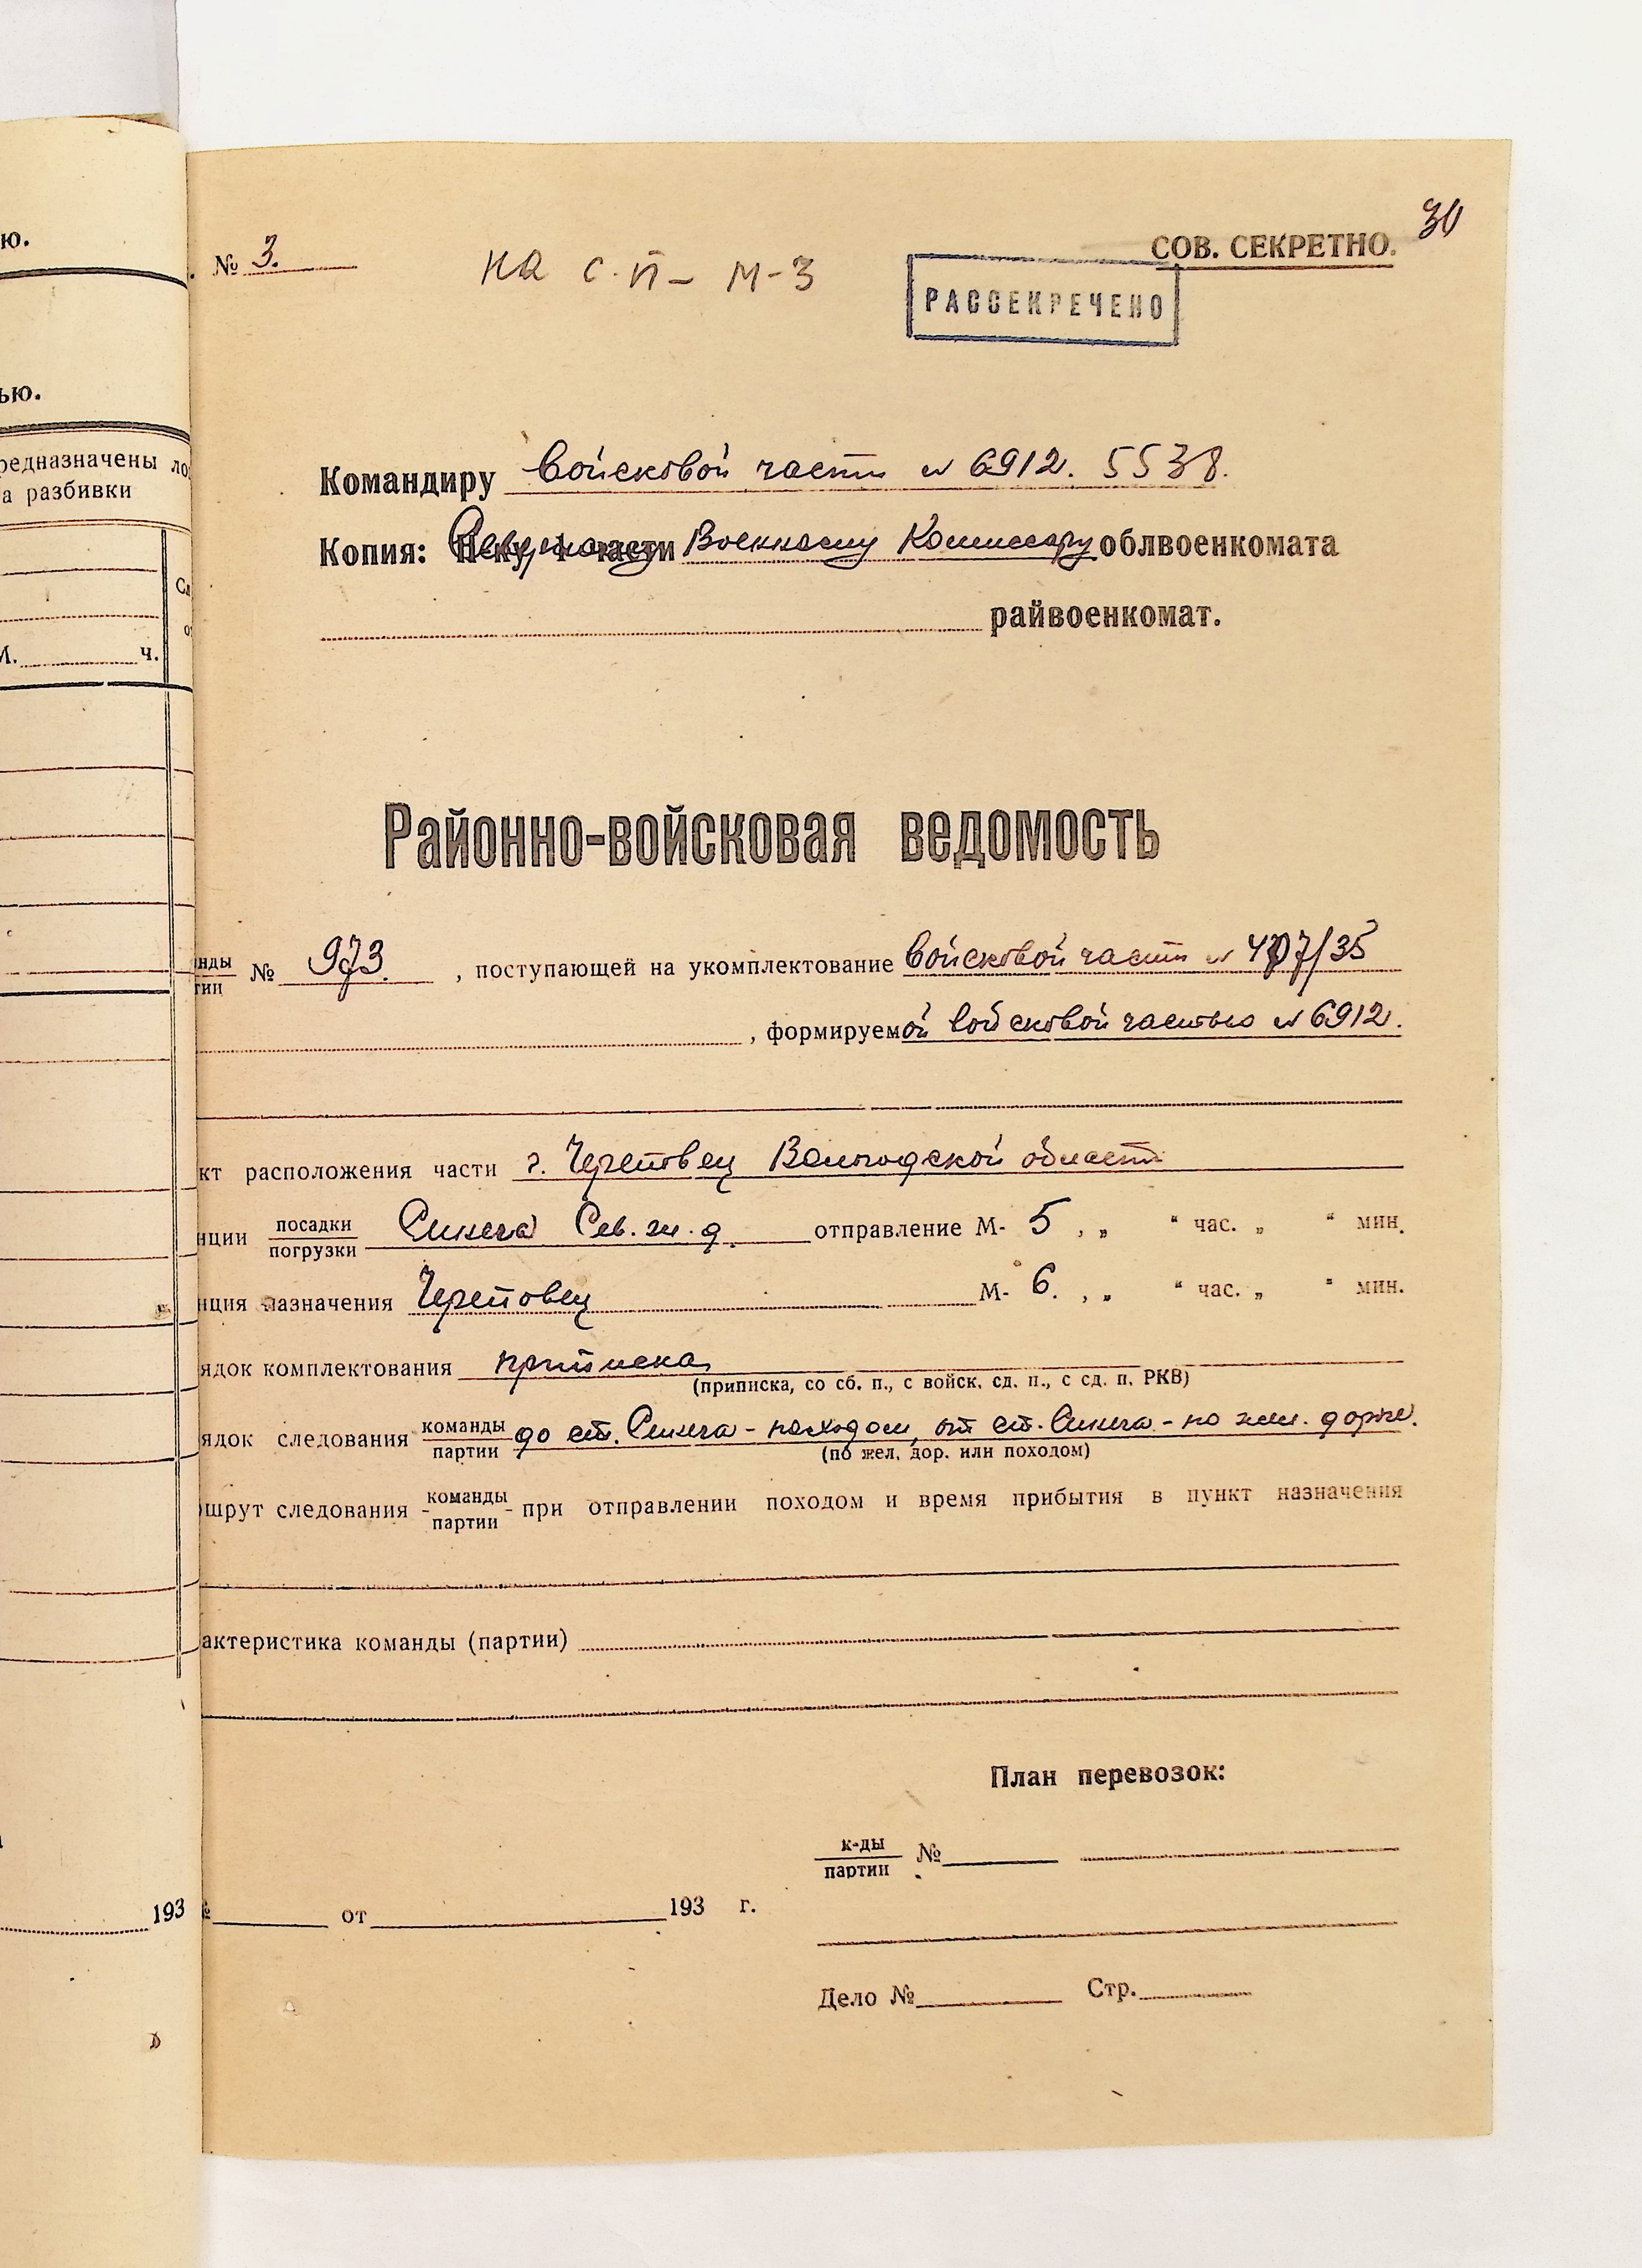 ю.
ью.
редназначены ло
а разбивки
М. ч.
193
№ 3.
на с.п – м-3
СОВ. СЕКРЕТНО.
30
РАССЕКРЕЧЕНО
Командиру войсковой части № 6912. 5538.
Копия: Военному Комиссару облвоенкомата
райвоенкомат.
Районно-войсковая ведомость
нды
тии
№ 973. , поступающей на укомплектование войсковой части № 407/35
, формируемой войсковой частью № 6912.
кт расположения части г. Череповец Вологодской области
нции посадки
погрузки
Синега Сев. ж. д. отправление М- 5 , „ “ час. „ “ мин.
нция назначения Череповец М- 6. , „ “ час. „ “ мин.
ядок комплектования приписка
(приписка, со сб. п., с войск. сд. п., с сд. п. РКВ)
ядок следования команды
партии
до ст. Синега - походом, от ст. Синега - по жел. дороге.
(по жел. дор. или походом)
ршрут следования команды
партии
при отправлении походом и время прибытия в пункт назначения
актеристика команды (партии)
План перевозок:
к-ды
партии
№
№ от 193 г.
Дело № Стр.